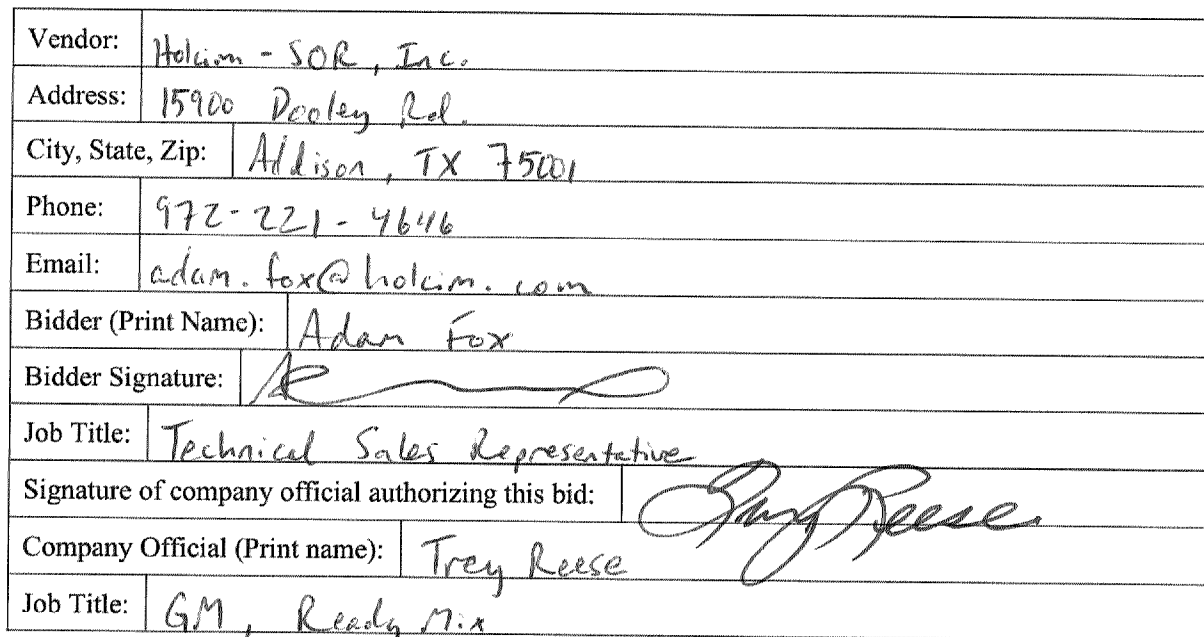 Vendor: Holcim - SOR, Inc.
Address: 15900 Dooley Rd.
City, State, Zip: Addison, TX 75001
Phone: 972-221-4646
Email: adam.fox@holcim.com
Bidder (Print Name): Adam Fox
Bidder Signature:
Job Title: Technical Sales Representative
Signature of company official authorizing this bid: Reese
Company Official (Print name): Trey Reese
Job Title: GM, Ready Mix